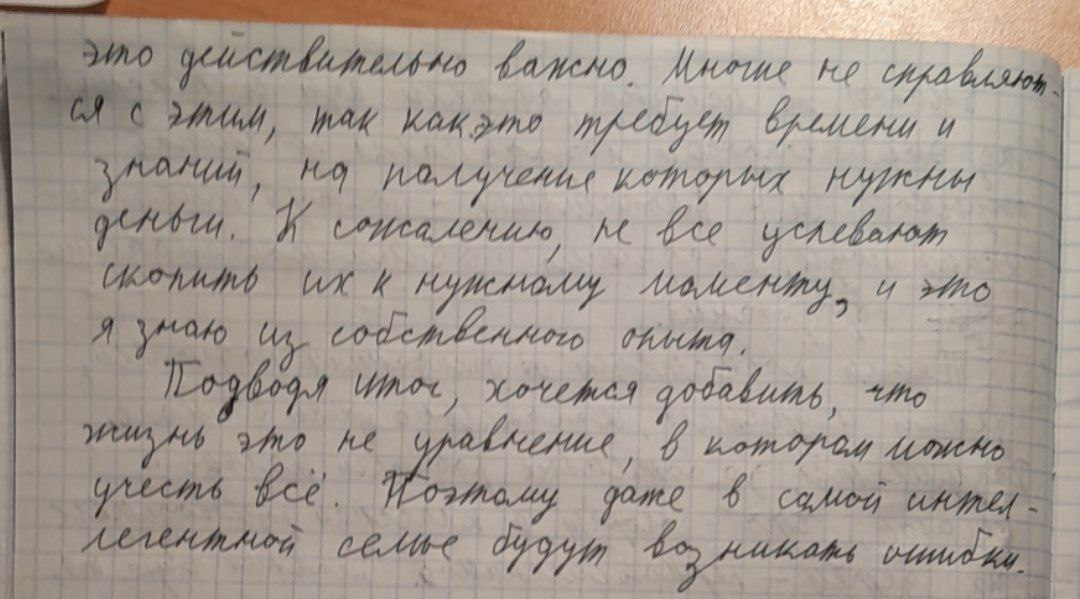 это действительно важно. Многие не справляют-
ся с этим, так как это требует времени и
знаний, на получение которых нужны
деньги. К сожалению, не все успевают
скопить их к нужному моменту, и это
я знаю из собственного опыта.
Подводя итог, хочется добавить, что
жизнь это не уравнение, в котором можно
учесть всё. Поэтому даже в самой интел-
легентной семье будут возникать ошибки.